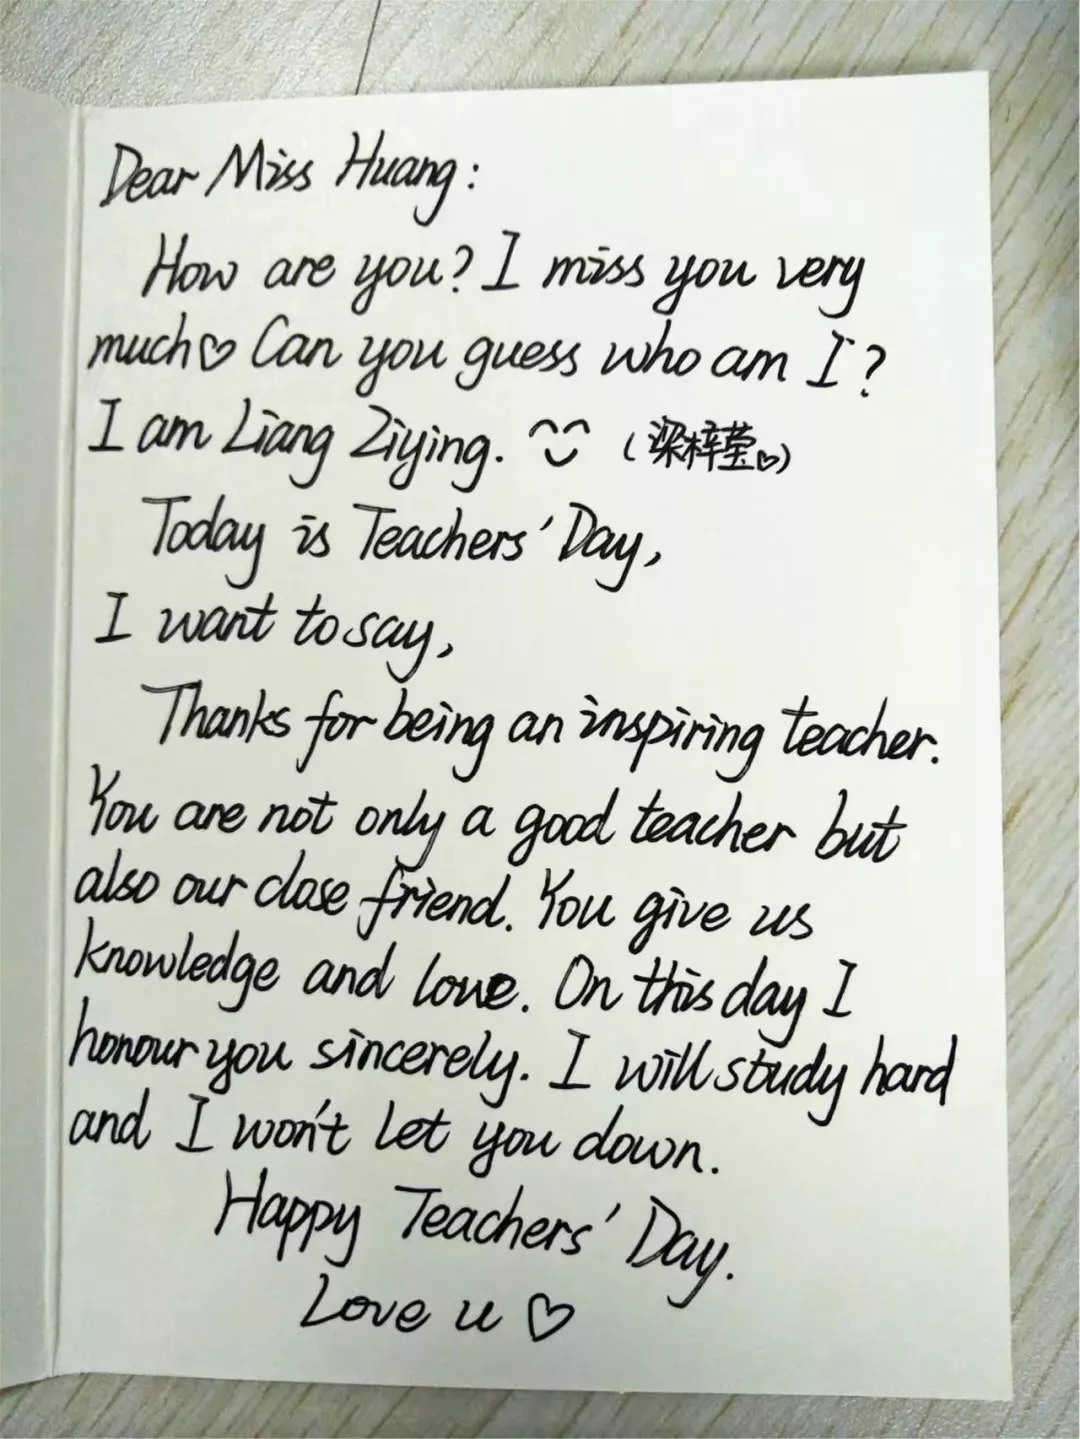 Dear Miss Huang:
How are you? I miss you very
much♡ Can you guess who am I?
I am Liang Ziying. (梁梓莹♡)
Today is Teachers' Day,
I want to say,
Thanks for being an inspiring teacher.
You are not only a good teacher but
also our close friend. You give us
knowledge and love. On this day I
honour you sincerely. I will study hard
and I won't let you down.
Happy Teachers' Day.
Love u ♡